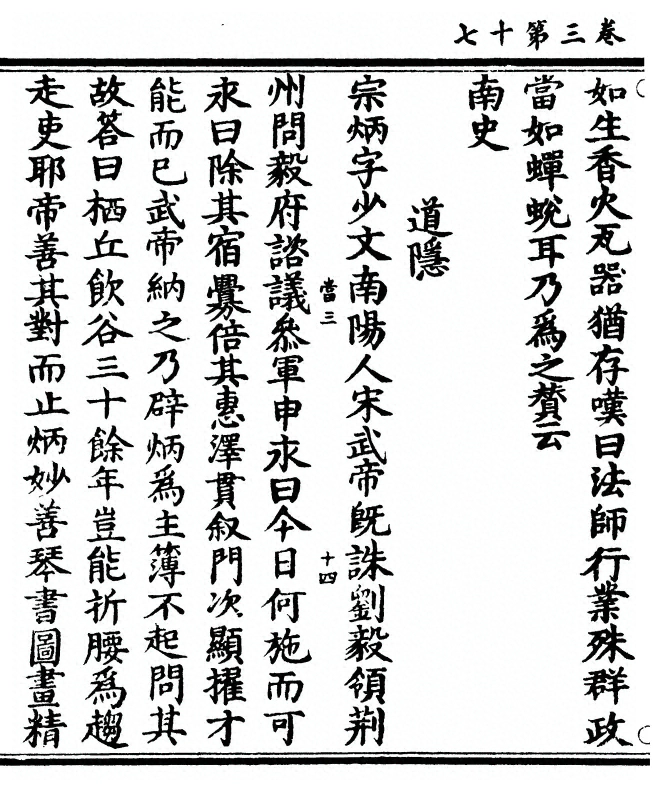 卷三第十七
如生香火瓦器猶存嘆曰法師行業殊群政
當如蟬蛻耳乃爲之贊云
南史
道隱
宗炳字少文南陽人宋武帝旣誅劉毅領荆
當三
十四
州問毅府諮議叅軍申永曰今日何施而可
永曰除其宿釁倍其惠澤貫叙門次顯擢才
能而已武帝納之乃辟炳爲主簿不起問其
故荅曰栖丘飲谷三十餘年豈能折腰爲趨
走吏耶帝善其對而止炳妙善琴書圖畫精